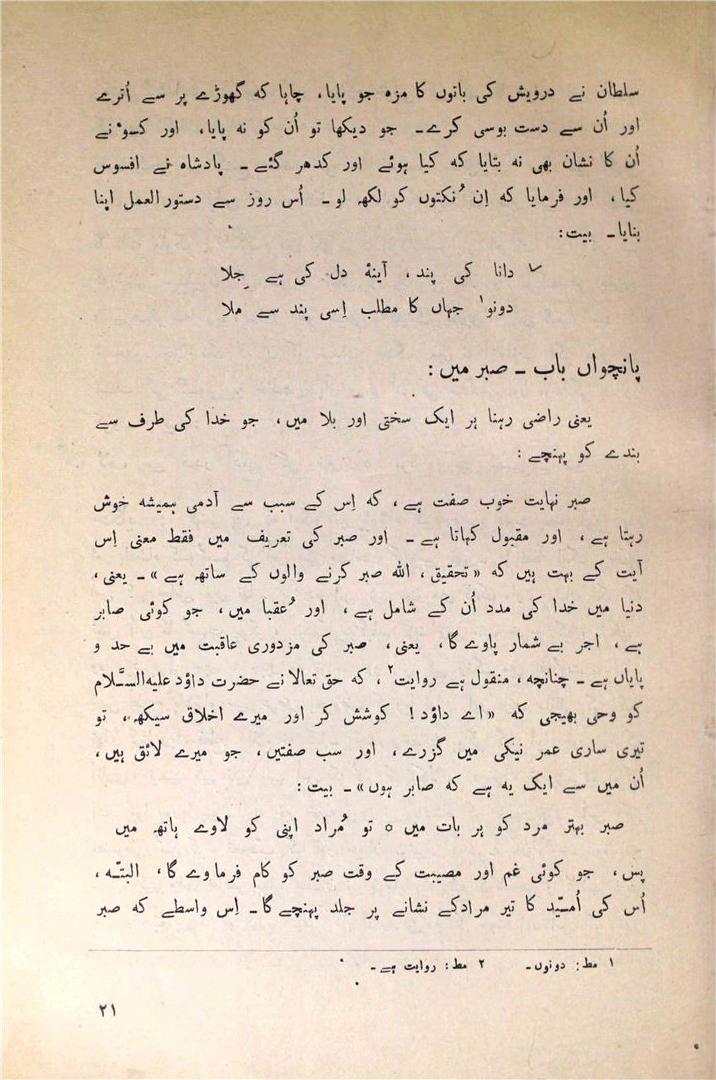 سلطان نے درویش کی باتوں کا مزہ جو پایا، چاہا کہ گھوڑے پر سے اُترے
اور اُن سے دست بوسی کرے۔ جو دیکھا تو اُن کو نہ پایا، اور کسو نے
اُن کا نشان بھی نہ بتایا کہ کیا ہوئے اور کدھر گئے۔ پادشاہ نے افسوس
کیا، اور فرمایا کہ اِن نُکتوں کو لکھ لو۔ اُس روز سے دستور العمل اپنا
بنایا۔ بیت:
دانا کی پند، آینۂ دل کی ہے جِلا
دونو۱ جہاں کا مطلب اِسی پند سے ملا
پانچواں باب ۔ صبر میں:
یعنی راضی رہنا ہر ایک سختی اور بلا میں، جو خدا کی طرف سے
بندے کو پہنچے:
صبر نہایت خوب صفت ہے، کہ اِس کے سبب سے آدمی ہمیشہ خوش
رہتا ہے، اور مقبول کہاتا ہے۔ اور صبر کی تعریف میں فقط معنی اِس
آیت کے بہت ہیں کہ «تحقیق، اللہ صبر کرنے والوں کے ساتھ ہے»۔ یعنی،
دنیا میں خدا کی مدد اُن کے شامل ہے، اور عُقبا میں، جو کوئی صابر
ہے، اجر بے شمار پاوے گا، یعنی، صبر کی مزدوری عاقبت میں بے حد و
پایاں ہے۔ چنانچہ، منقول ہے روایت۲، کہ حق تعالا نے حضرت داؤد علیہ السَّلام
کو وحی بھیجی کہ «اے داؤد! کوشش کر اور میرے اخلاق سیکھ، تو
تیری ساری عمر نیکی میں گزرے، اور سب صفتیں، جو میرے لائق ہیں،
اُن میں سے ایک یہ ہے کہ صابر ہوں»۔ بیت:
صبر بہتر مرد کو ہر بات میں ٥ تو مُراد اپنی کو لاوے ہاتھ میں
پس، جو کوئی غم اور مصیبت کے وقت صبر کو کام فرماوے گا، البتّہ،
اُس کی اُمّید کا تیر مراد کے نشانے پر جلد پہنچے گا۔ اِس واسطے کہ صبر
۱ مط: دونوں۔ ۲ مط: روایت ہے۔
۲۱